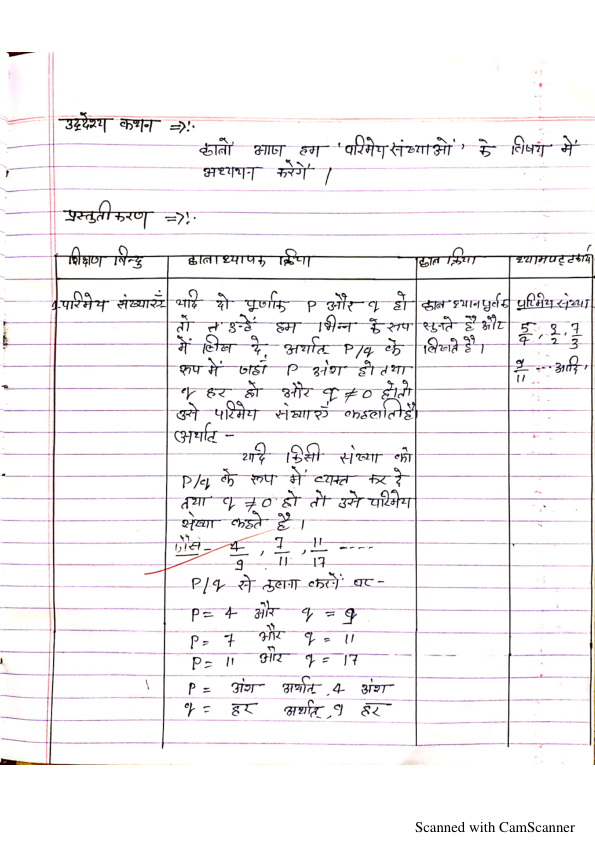 उद्देश्य कथन =>:-
छात्रों आज हम 'परिमेय संख्याओं' के विषय में
अध्ययन करेगें ।
प्रस्तुतीकरण =>:-
शिक्षण बिन्दु
छात्राध्यापक क्रिया
छात्र क्रिया
श्यामपट्टकार्य
1. परिमेय संख्याएँ
यदि दो पूर्णांक P और q हो
तो उन्हें हम भिन्न के रूप
में लिख दे, अर्थात् P/q के
रूप में जहाँ P अंश हो तथा
q हर हो और q ≠ 0 हो तो
उसे परिमेय संख्याएँ कहलाती है।
अर्थात् -
यदि किसी संख्या को
P/q के रूप में व्यक्त कर दे
तथा q ≠ 0 हो तो उसे परिमेय
संख्या कहते है ।
जैसे- 4/9 , 7/11 , 11/17 ----
P/q से तुलना करनें पर -
P = 4 और q = 9
P = 7 और q = 11
P = 11 और q = 17
P = अंश अर्थात्, 4 अंश
q = हर अर्थात्, 9 हर
छात्र ध्यानपूर्वक
सुनते है और
लिखते है ।
परिमेय संख्या
5/4 , 8/2 , 7/3
9/11 --- आदि।
Scanned with CamScanner